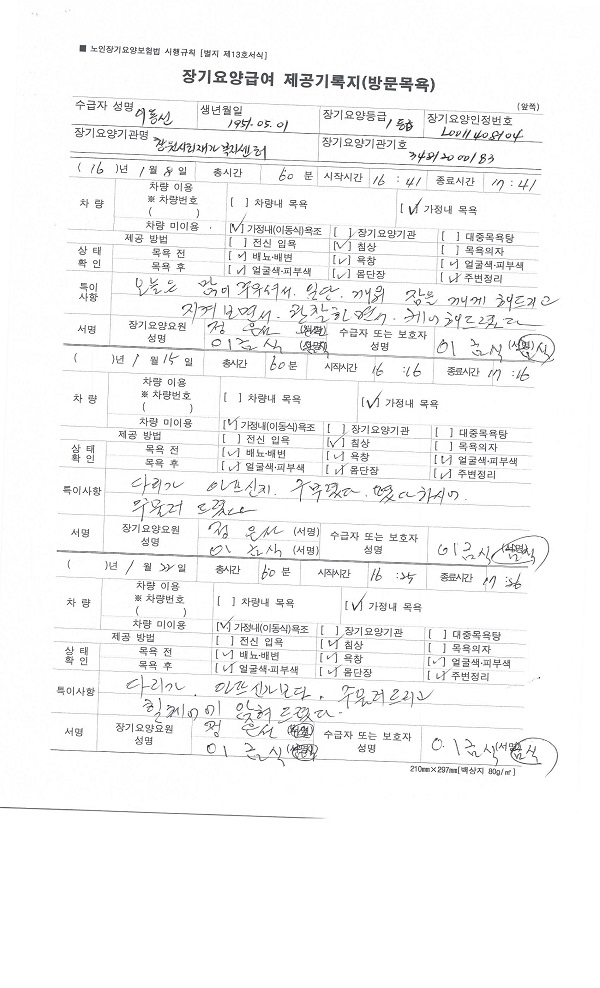 ■ 노인장기요양보험법 시행규칙 [별지 제13호서식]
장기요양급여 제공기록지(방문목욕)
(앞쪽)
수급자 성명 생년월일 1951.05.01 장기요양등급 1등급 장기요양인정번호 L0011408104
장기요양기관명 장기요양기관기호 34812000183
( 16 )년 1월 8일 총시간 60 분 시작시간 16 : 41 종료시간 17 : 41
차 량
차량 이용
※ 차량번호
( )
[ ] 차량내 목욕
[√] 가정내 목욕
차량 미이용 [√] 가정내(이동식)욕조 [ ] 장기요양기관 [ ] 대중목욕탕
제공 방법 [ ] 전신 입욕 [√] 침상 [ ] 목욕의자
상 태
확 인
목욕 전 [√] 배뇨·배변 [√] 욕창 [√] 얼굴색·피부색
목욕 후 [√] 얼굴색·피부색 [√] 몸단장 [√] 주변정리
특이
사항
오늘은 많이 주무셔서. 일단. 깨워 잠을 깨게 해드리고
지켜보면서. 관찰하면서. 해드렸다
서명
장기요양요원
성명
정
이금식 (서명)
수급자 또는 보호자
성명
이금식 (서명)
( )년 1월 15일 총시간 60 분 시작시간 16 : 16 종료시간 17 : 16
차 량
차량 이용
※ 차량번호
( )
[ ] 차량내 목욕
[√] 가정내 목욕
차량 미이용 [√] 가정내(이동식)욕조 [ ] 장기요양기관 [ ] 대중목욕탕
제공 방법 [ ] 전신 입욕 [√] 침상 [ ] 목욕의자
상 태
확 인
목욕 전 [√] 배뇨·배변 [√] 욕창 [√] 얼굴색·피부색
목욕 후 [√] 얼굴색·피부색 [√] 몸단장 [√] 주변정리
특이사항
다리가 아프신지. 하시어
주물러 드렸다
서명
장기요양요원
성명
정 (서명)
이금식 (서명)
수급자 또는 보호자
성명
이금식 (서명)
( )년 1월 22일 총시간 60 분 시작시간 16 : 25 종료시간 17 : 26
차 량
차량 이용
※ 차량번호
( )
[ ] 차량내 목욕
[√] 가정내 목욕
차량 미이용 [√] 가정내(이동식)욕조 [ ] 장기요양기관 [ ] 대중목욕탕
제공 방법 [ ] 전신 입욕 [√] 침상 [ ] 목욕의자
상 태
확 인
목욕 전 [√] 배뇨·배변 [√] 욕창 [√] 얼굴색·피부색
목욕 후 [√] 얼굴색·피부색 [√] 몸단장 [√] 주변정리
특이사항
다리가. 아프신가보다. 주물러드리고
휠체어에 앉혀 드렸다.
서명
장기요양요원
성명
정
이금식 (서명)
수급자 또는 보호자
성명
이금식 (서명)
210㎜×297㎜[백상지 80g/㎡]